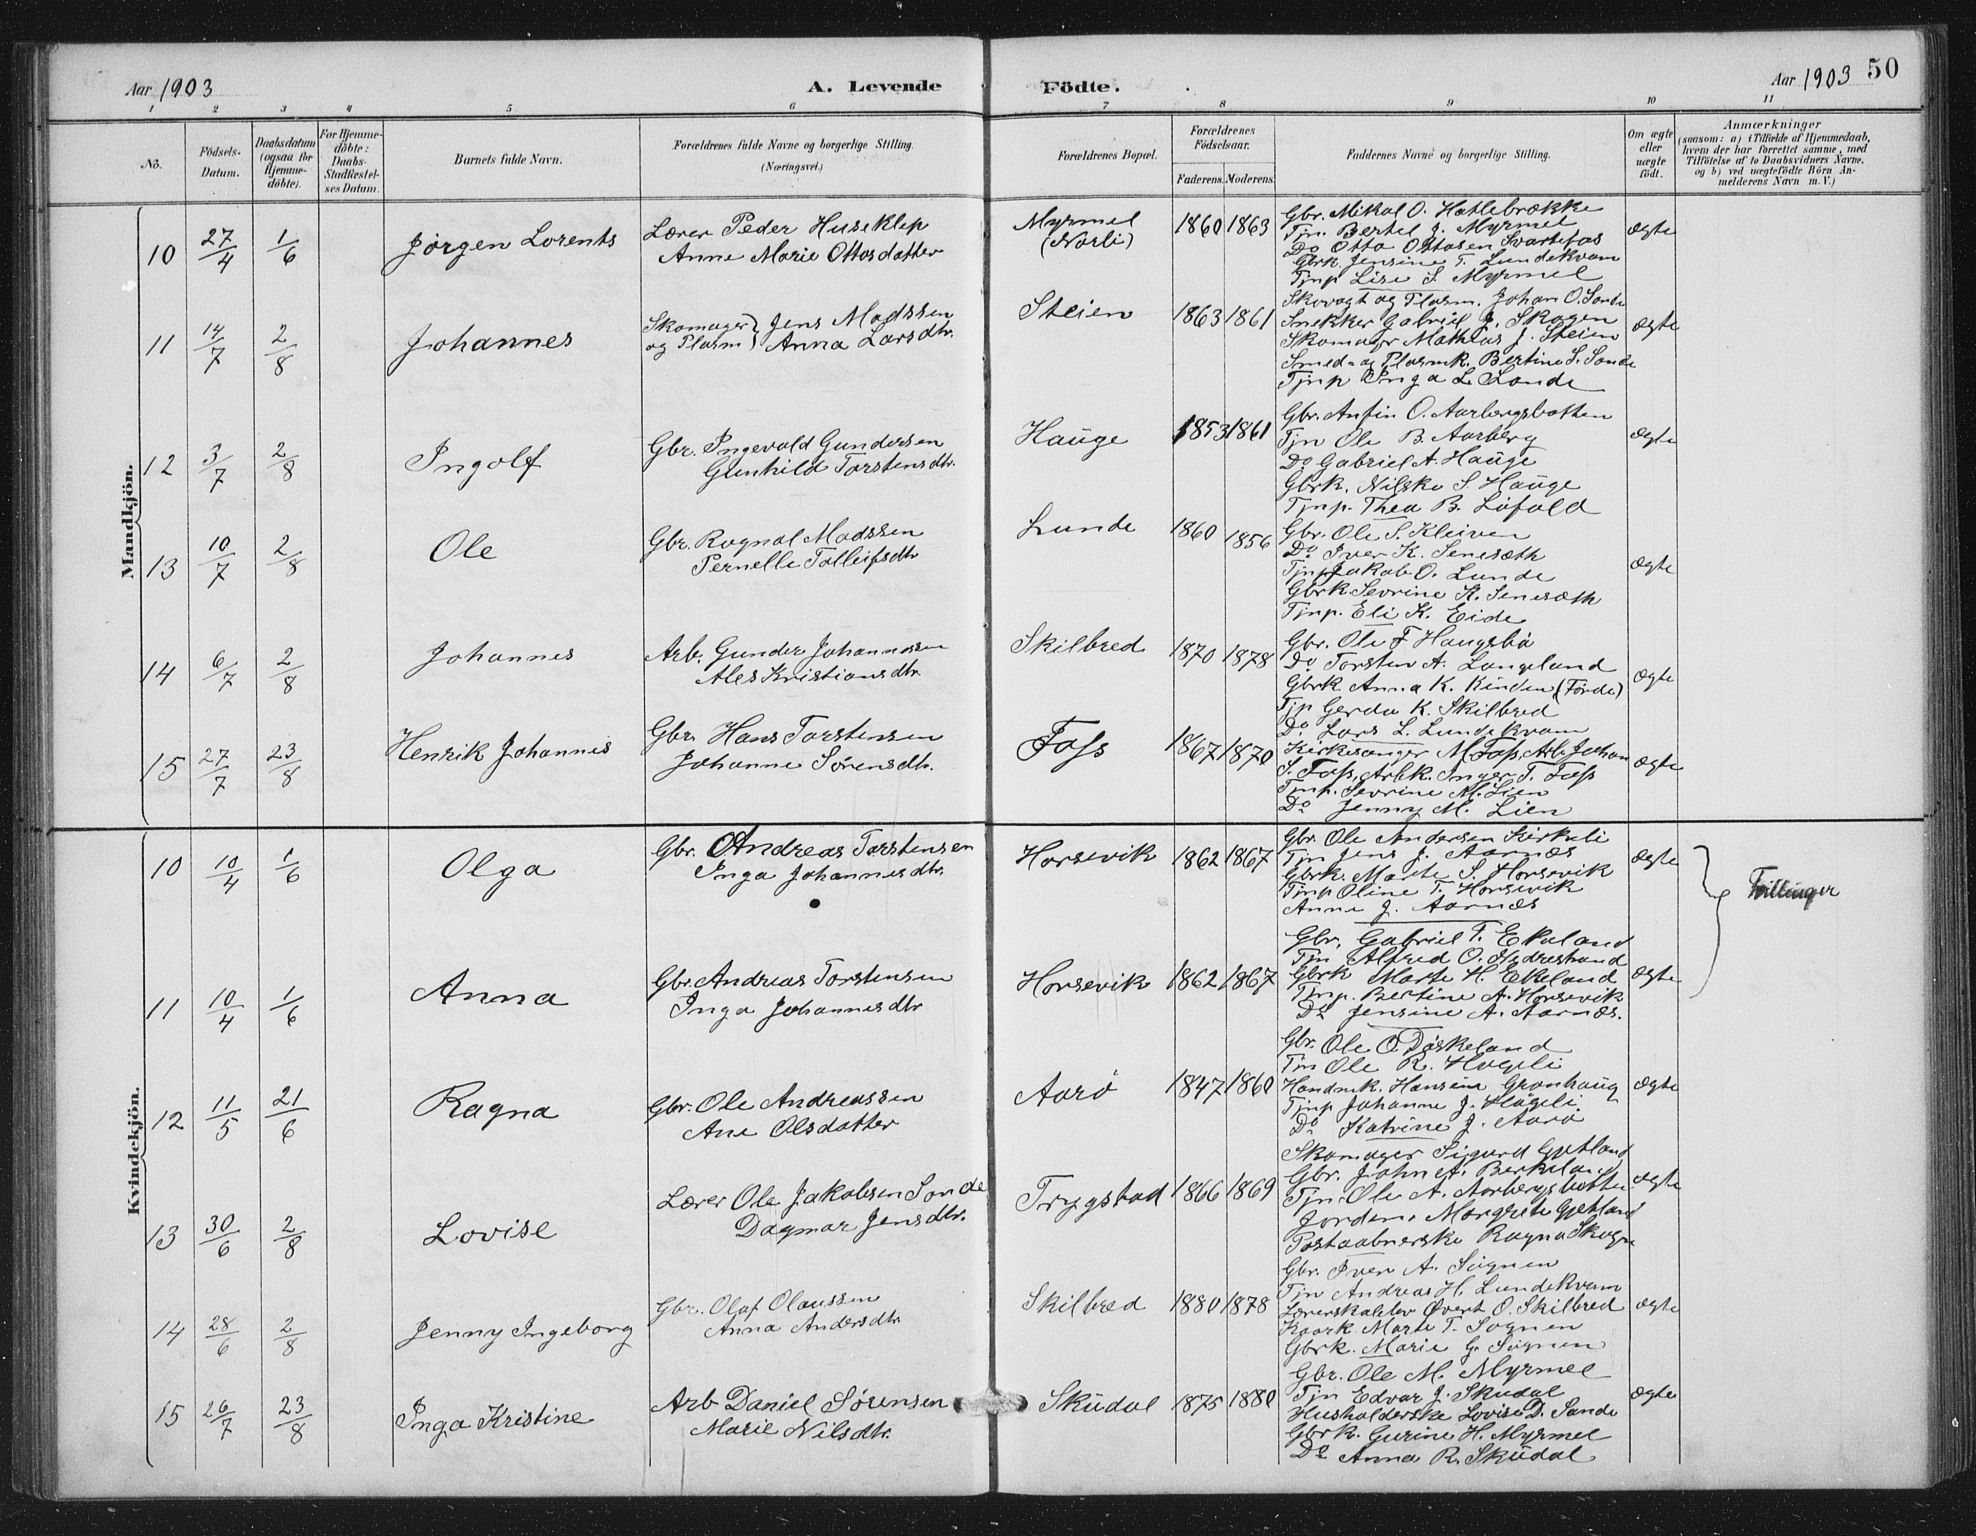 Aar 1903
A. Levende Födte.
Aar 1903 50
1 2 3 4 5 6 7 8 9 10 11
No.
Födsels-Datum.
Daabsdatum (ogsaa for Hjemme-döbte).
For Hjemme-döbte: Daabs-Stadfæstel-ses Datum.
Barnets fulde Navn.
Forældrenes fulde Navne og borgerlige Stilling.
(Næringsvei.)
Forældrenes Bopæl.
Forældrenes Födselsaar.
Faderens. Moderens.
Faddernes Navne og borgerlige Stilling.
Om ægte eller uægte født.
Anmærkninger
(saasom: a) i Tilfælde af Hjemmedaab, hvem der har forrettet samme, med Tilföielse af to Daabsvidners Navne. og b) ved uægtefödte Börn An-melderens Navn m. V.)
Mandkjön.
10 27/4 1/6 Jørgen Lorents
Lærer Peder Huseklep
Anne Marie Ottosdatter
Myrmel
(Norli)
1860 1863
Gbr. Mikal O. Hatlebrække
Tjn. Bertel J. Myrmel
Do Otto Ottosen Svartefos
Gbrk. Jensine T. Lundekvam
Tjnp Lise S. Myrmel
ægte
11 14/7 2/8 Johannes
Skomager og Plasm } Jens Madssen
Anna Larsdtr.
Steien
1863 1861
Skovogt og Plasm. Johan O. Sande
Snekker Gabriel J. Skogen
Skomager Mathias J. Steien
Smed- og Plasmk. Bertine S. Sande
Tjnp Inga L. Sande
ægte
12 3/7 2/8 Ingolf
Gbr. Ingevald Gundersen
Gunhild Torstensdtr.
Hauge
1853 1861
Gbr. Anfin O. Aarbergsbotten
Tjn Ole B. Aarberg
Do Gabriel A. Hauge
Gbrk. Nilske S. Hauge
Tjnp. Thea B. Løfald
ægte
13 10/7 2/8 Ole
Gbr. Ragnal Madssen
Pernelle Tolleifsdtr
Lunde
1860 1856
Gbr. Ole S. Kleiven
Do Iver K. Senesæth
Tjnp Jakob O. Lunde
Gbrk Sevrine K. Senesæth
Tjnp. Eli K. Eide
ægte
14 6/7 2/8 Johannes
Arb. Gunder Johannessen
Ales Kristiansdtr.
Skilbred
1870 1878
Gbr. Ole F Haugsbø
Do Torsten A. Langeland
Gbrk. Anna K. Kinden (Førde)
Tjp Gerda K. Skilbred
Do Lars L. Lundekvam
ægte
15 27/7 23/8 Henrik Johannes
Gbr. Hans Torstensen
Johanne Sørensdtr.
Foss
1867 1870
Kirkesanger M. Foss, Arb. Johan
S. Foss, Arbk. Inger T. Foss
Tjnp. Sevrine M. Lien
Do Jenny M. Lien
ægte
Kvindekjön.
10 10/4 1/6 Olga
Gbr. Andreas Torstensen
Inga Johannesdtr.
Horsevik
1862 1867
Gbr. Ole Andersen Kirkeli
Tjn Jens J. Aarnæs
Gbrk. Marte S. Horsevik
Tjnp Oline T. Horsevik
Anne J. Aarnæs
ægte
Tvillinger
11 10/4 1/6 Anna
Gbr. Andreas Torstensen
Inga Johannesdtr
Horsevik
1862 1867
Gbr. Gabriel T. Ekeland
Tjn Alfred O. Indrestrand
Gbrk Marte H. Ekeland
Tjnp. Bertine A. Horsevik
Do Jensine A. Aarnæs.
ægte
12 11/5 21/6 Ragna
Gbr. Ole Andreassen
Ane Olsdatter
Aarø
1847 1860
Gbr. Ole O Døskeland
Tjn Ole R. Hageli
Handmk. Hansine Grønhaug
Tjnp Johanne J. Hageli
Do Katrine J. Aarø
ægte
13 30/6 2/8 Lovise
Lærer Ole Jakobsen Sande
Dagmar Jensdtr.
Trygstad
1866 1869
Skomager Sigurd Gjetland
Gbr. John A. Berkeland
Tjn. Ole A. Aarbergsbotten
Jordm. Margrete Gjetland
Postaabnerske Ragna Skogen
ægte
14 28/6 2/8 Jenny Ingeborg
Gbr. Olaf Olaussen
Anna Andersdtr
Skilbred
1880 1878
Gbr. Iver A. Sognen
Tjn Andreas H. Lundekvam
Lærerskolelev Øvert O. Skilbred
Kaark. Marte T. Sognen
Gbrk. Marie G. Sognen
ægte
15 26/7 23/8 Inga Kristine
Arb Daniel Sørensen
Marie Nilsdtr.
Skudal
1875 1880
Gbr. Ole M. Myrmel
Tjn Edvar J. Skudal
Husholderske Lovise D. Sande
Gbrk. Gurine H. Myrmel
Do Anna R. Skudal
ægte